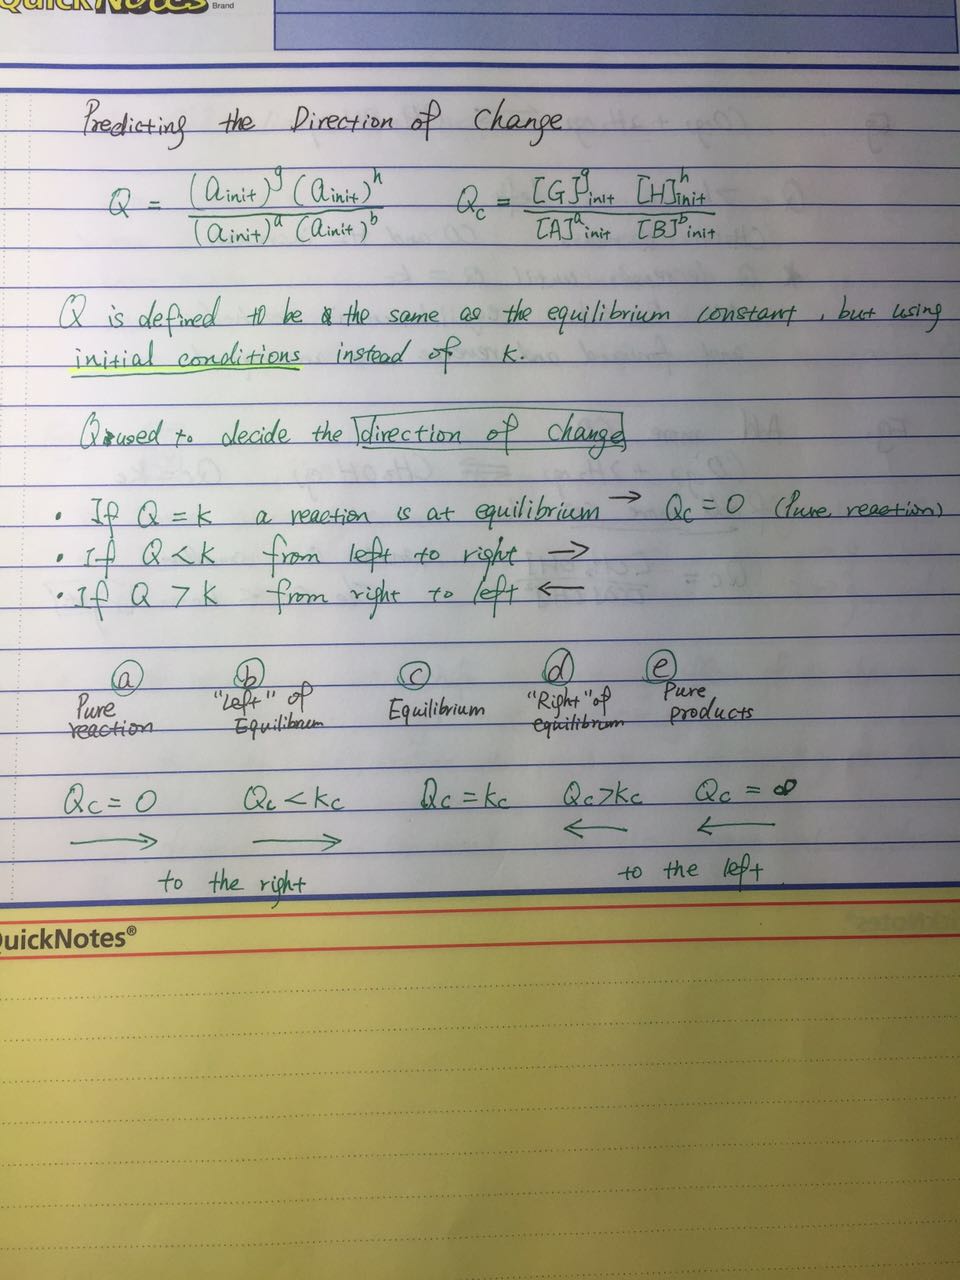 QuickNotes Brand
Predicting the Direction of Change
Q = (a init)^g (a init)^h / (a init)^a (a init)^b    Qc = [G]^g init [H]^h init / [A]^a init [B]^b init
Q is defined to be the same as the equilibrium constant, but using
initial conditions instead of k.
Q used to decide the direction of change
• If Q = k a reaction is at equilibrium → Qc = 0 (Pure reaction)
• If Q < k from left to right →
• If Q > k from right to left ←
ⓐ ⓑ ⓒ ⓓ ⓔ
Pure "Left" of Equilibrium "Right" of Pure
reaction Equilibrium equilibrum products
Qc = 0 Qc < kc Qc = kc Qc > kc Qc = ∞
→ → ← ←
to the right to the left
QuickNotes®